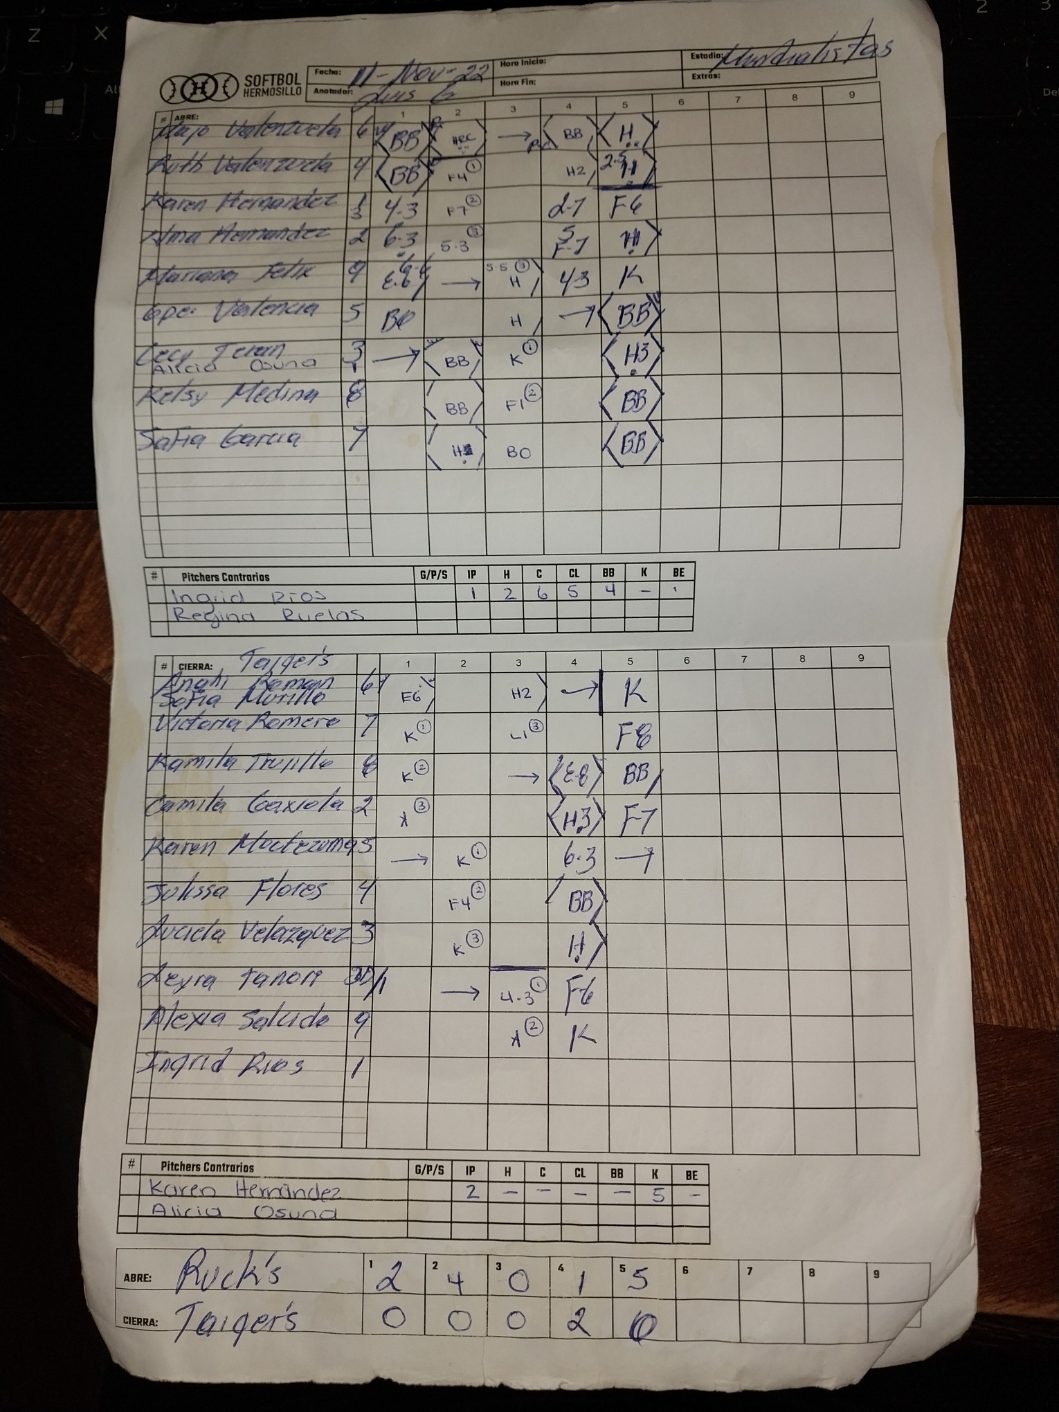 Z X 2 3
SOFTBOL
HERMOSILLO
Fecha: 11-Nov-22 Hora Inicio: Estadio: Mundialistas
Anotador: Luis G Hora Fin: Extras:
# ABRE: 1 2 3 4 5 6 7 8 9
Majo Valenzuela 6 BB → BB H
Ruth Valenzuela 4 BB F4 ① H2 H
Karen Hernandez 1 3 4-3 F7 ② 2-7 F6
Alma Hernandez 2 6-3 5-3 ③ F-7 H
Mariana Felix 9 E-6 → H 43 K
Gpe. Valencia 5 BO H → BB
Cecy Teran 3 → BB K ① H3
Alicia Osuna 1
Kelsy Medina 8 BB F1 ② BB
Sofia Garcia 7 H BO BB
# Pitchers Contrarios G/P/S IP H C CL BB K BE
Ingrid Rios 1 2 6 5 4 - 1
Regina Ruelas
# CIERRA: Taiger's 1 2 3 4 5 6 7 8 9
Anahi Roman 6 E6 H2 → K
Sofia Murillo
Victoria Romero 7 K ① L1 ③ F8
Kamila Trujillo 8 K ② → E-8 BB
Camila Gaxiola 2 K ③ H3 F7
Karen Moctezuma 5 → K ① 6-3 →
Julissa Flores 4 F4 ② BB
Luciela Velazquez 3 K ③ H
Leyra Tanori → 4-3 ① F6
Alexia Salcido 9 K ② K
Ingrid Rios 1
# Pitchers Contrarios G/P/S IP H C CL BB K BE
Karen Hernández 2 - - - - 5 -
Alicia Osuna
ABRE: Ruck's 1 2 2 4 3 0 4 1 5 5 6 7 8 9
CIERRA: Taiger's 0 0 0 2 0